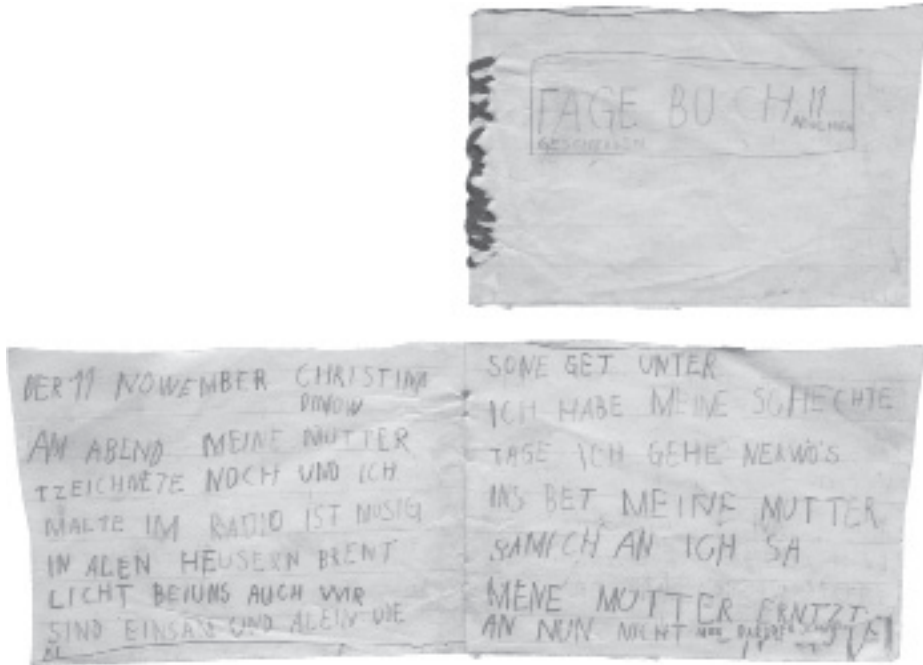 TAGE BUCH 11
GESCHRIEBEN
DER 11 NOWEMBER CHRISTINA
DINOW
AM ABEND MEINE MUTTER
TZEICHNETE NOCH UND ICH
MALTE IM RADIO IST MUSIG
IN ALEN HEUSERN BRENT
LICHT BEIUNS AUCH WIR
SIND EINSAM UND ALEIN DIE
SONE GET UNTER
ICH HABE MEINE SCHECHTE
TAGE ICH GEHE NERWÖS
INS BET MEINE MUTTER
SAMICH AN ICH SA
MENE MUTTER ERNTZT
AN NUN NICHT